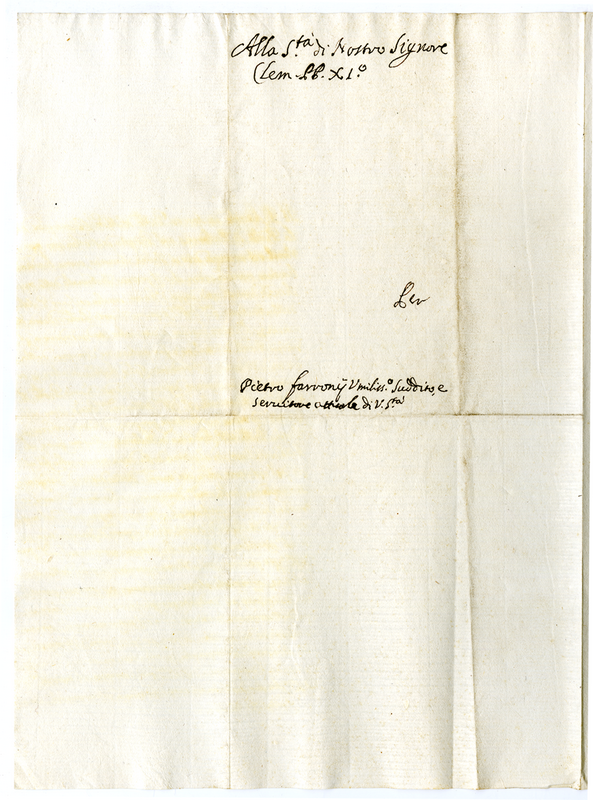 Alla S.tà di Nostro Signore
Clem. PP. XI.º
Per
Pietro farronij Umiliss.º Suddito, e
servitore attuale di V. S.tà